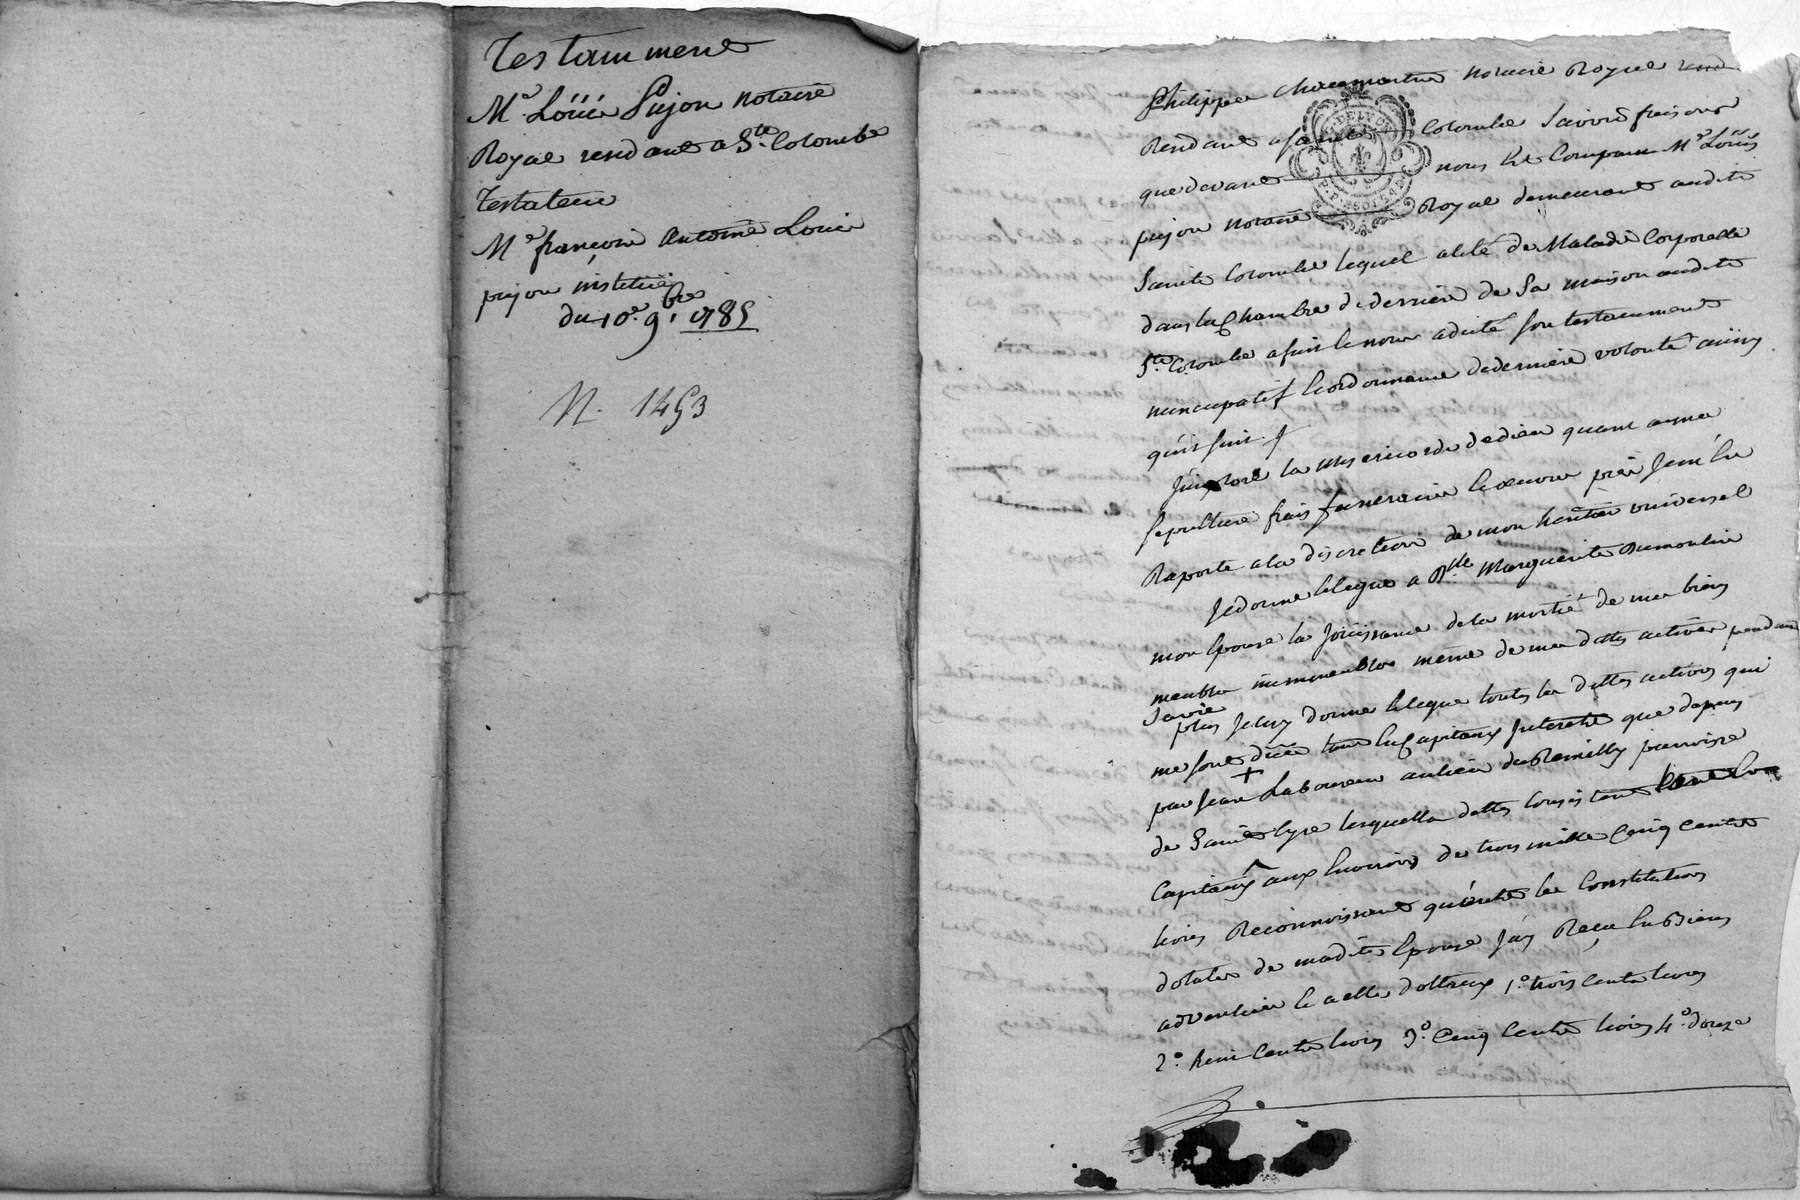 Testamment
Me. Loüis Pujon notaire
Royal rendant a Ste. Colombe
Testateur
Me françois Antoine Louis
pujon institüé
du 10e. 9bre 1785
N. 1453
Philippe notaire Royal
Rendant a sainte Colombe Savoir faisons
que devant nous Est Comparu Me Loüis
pujon notaire Royal demeurant audit
Sainte Colombe lequel alité de Maladie Corporelle
dans la Chambre de derriere de Sa maison audit
Ste Colombe a fait et nous a dicté son testamment
nuncupatif et ordonnance de derniere volonté ainsy
qu'il suit
J'implore la Misericorde de dieu quant a ma
sepulture frais funeraire et œuvre pies Je m'en
Raporte a la discretion de mon heritier universel
Je donne et legue a Dlle Marguerite Dumoulin
mon Epouse la Joüissance de la moitié de mes biens
meubles immeubles même de mes dettes actives pendant
Sa vie
plus Je luy donne et legue toutes les dettes actives qui
me sont düe tant En Capitaux Interets que depens
par Jean Laboureau du Remilly parroisse
de Saint Cyre lesquelles dettes Consistent
Capitaux aux Environs de trois mille Cinq Cents
livres Reconnoissant qu'outre les Constitutions
dotales de madite Epouse J'ay Reçu En Biens
adventice a elle d'ottreux 1o. trois Cents livres
2o. huit Cents livres 3o. Cinq Cents livres 4o. douze